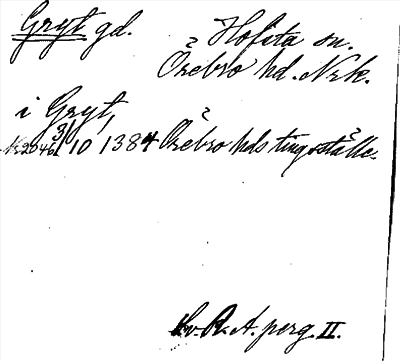 Gryt gd. Hofsta sn.
Örebro hd. Nrk.
i Gryt,
Nr 2046 3/10 1384 Örebro hds tingsställe.
Sv. R. A. perg. II.